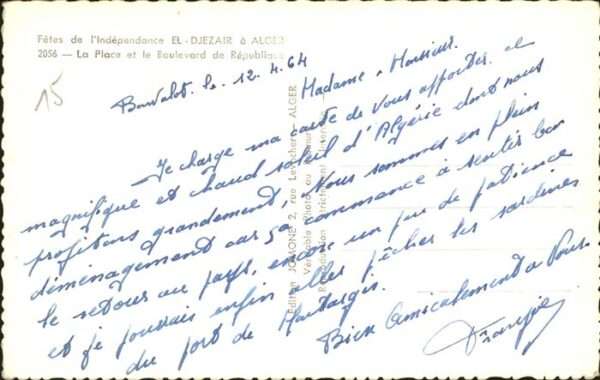 Fêtes de l'Indépendance EL-DJEZAIR à ALGER
2056 — La Place et le Boulevard de République
15
le 12.4.64
Madame, Monsieur
Je charge ma carte de vous apporter le
magnifique et chaud soleil d'Algérie dont nous
profitons grandement. Nous sommes en plein
déménagement car commence à sentir bon
le retour au pays, encore un peu de patience
et je pourrais enfin aller pêcher les sardines
du port de
Bien Amicalement à Vous
Edition JOMONE 2, rue ALGER
Véritable Photo au Bromure
Reproduction strictement interdite